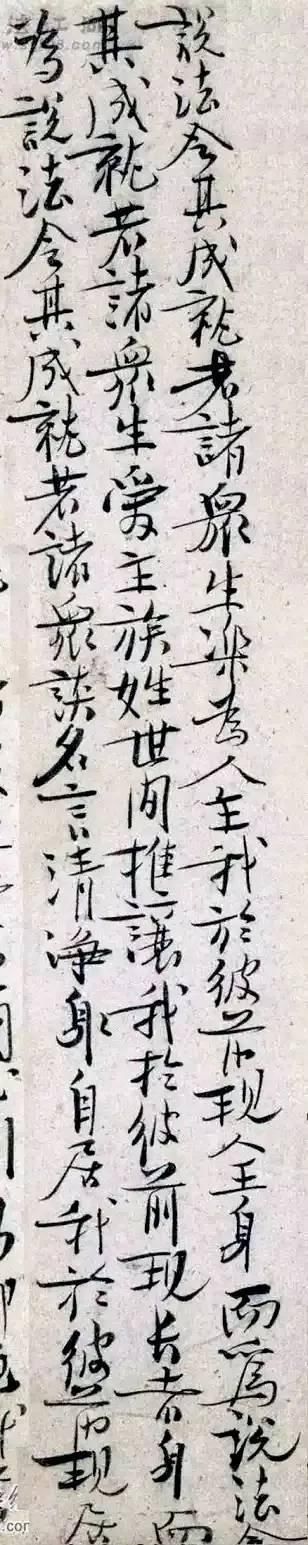 說法令其成就若諸衆生樂為人王我於彼前現人王身而為說法令
其成就若諸衆生愛主族姓世間推讓我於彼前現長者身而
為說法令其成就若諸衆談名言清淨身自居我於彼前現居